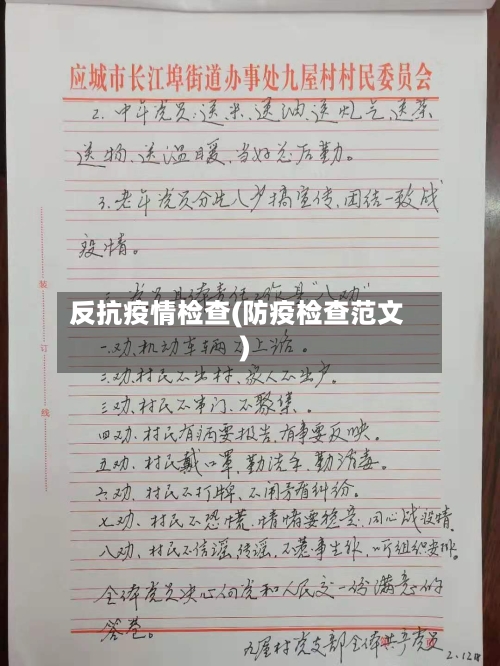 应城市长江埠街道办事处九屋村村民委员会
2. 中年党员:送米、送油、送煤气、送菜
送物、送温暖,当好总后勤。
3. 老年党员分片八步搞宣传,团结一致战
疫情。
反抗疫情检查(防疫检查范文
)
一劝、机动车辆不上路。
二劝、村民不出村,家人不出户。
三劝、村民不串门、不聚集。
四劝、村民有病要报告,有事要反映。
五劝、村民戴口罩,勤洗手,勤消毒。
六劝、村民不打牌,不闹矛盾纠纷。
七劝、村民不恐慌,情绪要稳定,同心战疫情。
八劝、村民不信谣传谣,不惹事生非,听组织安排。
全体党员决心向党和人民交一份满意的
答卷。
九屋村党支部全体共产党员
2.12日
装
订
线